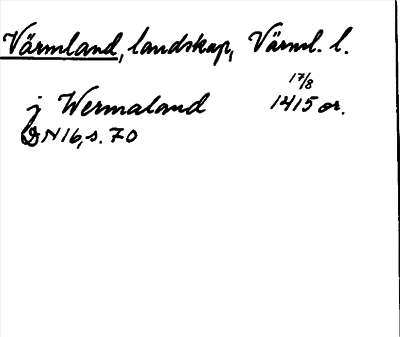 Värmland, landskap, Värml. l.
j Wermaland 17/8 1415 or.
DN 16, s. 70